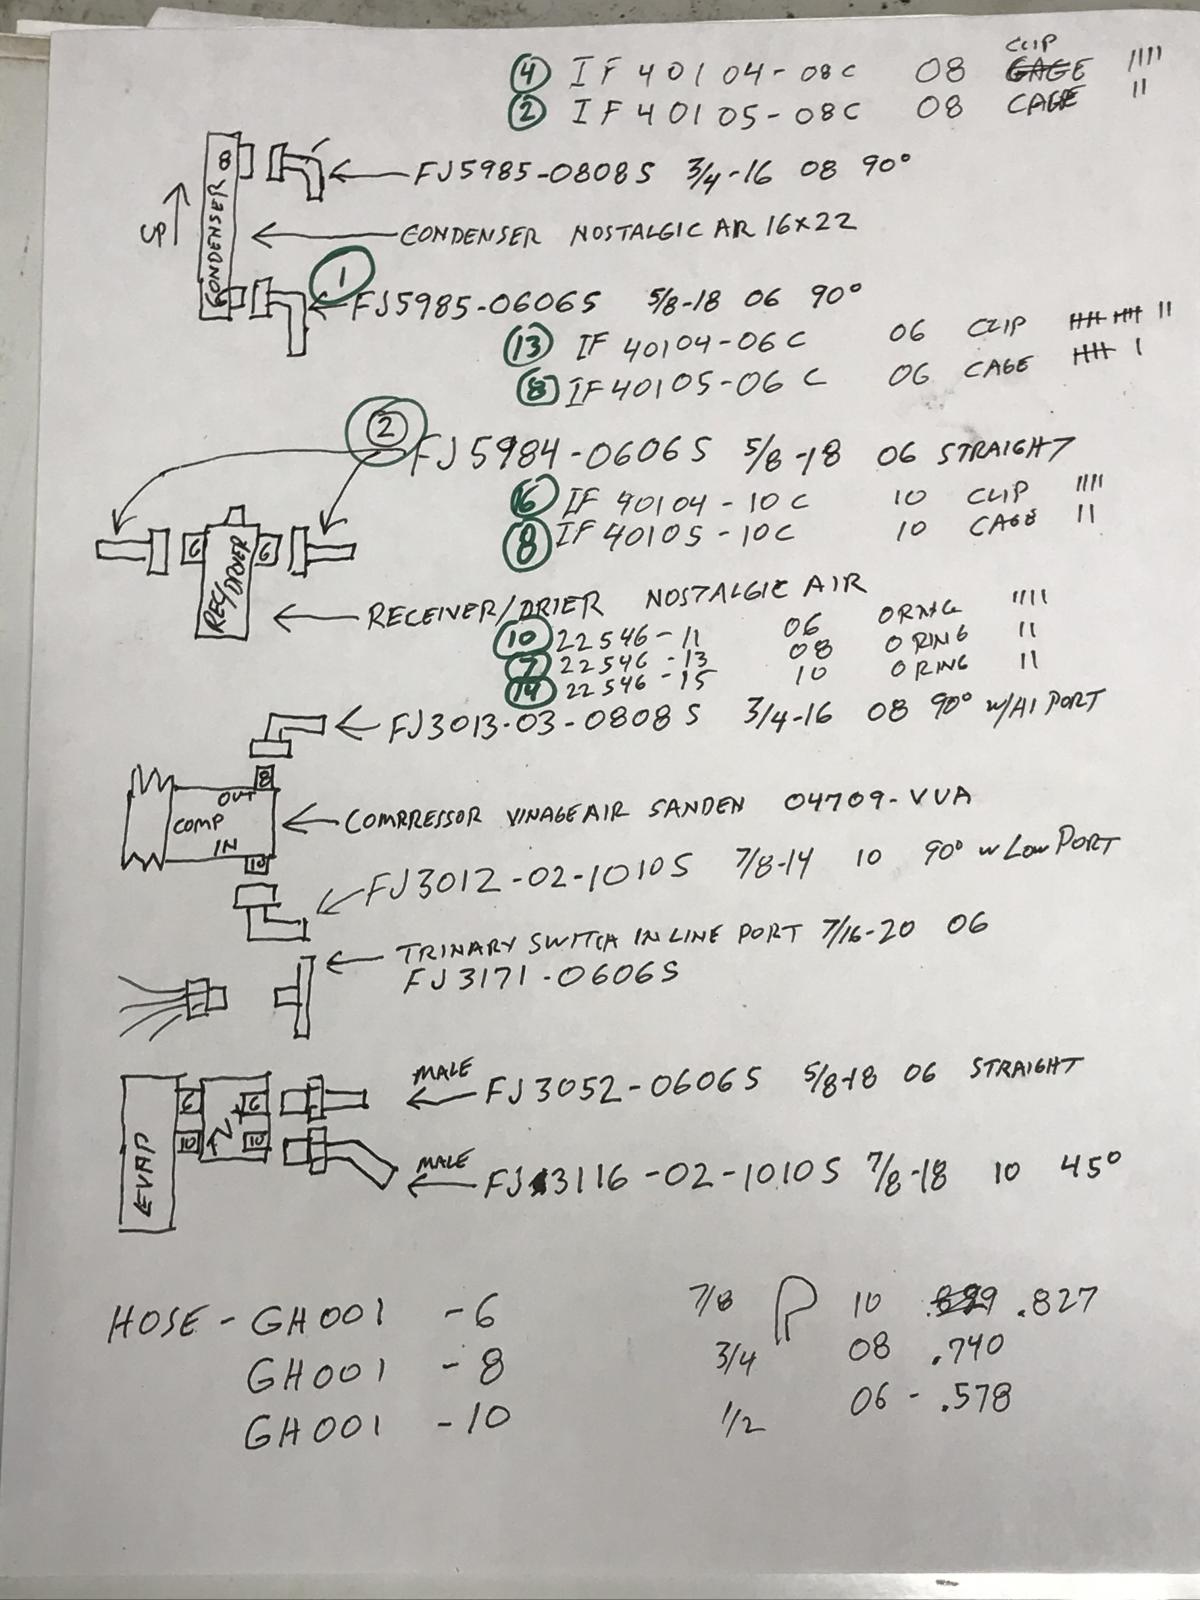 CLIP
④ IF 40104-08C 08 GAGE ||||
② IF 40105-08C 08 CAGE ||
8 FJ5985-0808S 3/4-16 08 90°
UP CONDENSER CONDENSER NOSTALGIC AR 16X22
①
6 FJ5985-0606S 5/8-18 06 90°
⑬ IF 40104-06C 06 CLIP |||| |||| ||
⑧ IF 40105-06C 06 CAGE |||| |
② FJ5984-0606S 5/8-18 06 STRAIGHT
⑯ IF 40104-10C 10 CLIP ||||
⑧ IF 40105-10C 10 CAGE ||
6 REC/DRIER 6
RECEIVER/DRIER NOSTALGIC AIR
⑩ 22546-11 06 ORING ||||
⑦ 22546-13 08 ORING ||
⑭ 22546-15 10 ORING ||
FJ3013-03-0808S 3/4-16 08 90° W/HI PORT
8
OUT
COMP COMPRRESSOR VINAGEAIR SANDEN 04709-VUA
IN
10
FJ3012-02-1010S 7/8-14 10 90° W LOW PORT
TRINARY SWITCH INLINE PORT 7/16-20 06
FJ3171-0606S
MALE
6 6 FJ3052-0606S 5/8-18 06 STRAIGHT
10 10
EVAP
MALE
FJ3116-02-1010S 7/8-18 10 45°
HOSE - GH001 -6
GH001 -8
GH001 -10
7/8 10 .827
3/4 08 .740
1/2 06 - .578